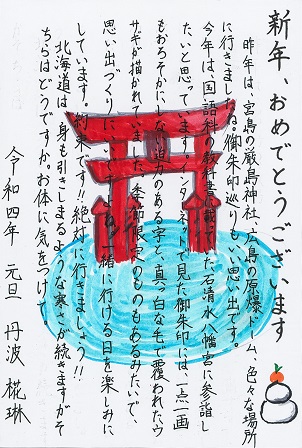 新年、おめでとうございます
昨年は、宮島の厳島神社、広島の原爆ドーム、色々な場所
に行きましたね。御朱印巡りもいい思い出です。
今年は、国語科の教科書に載っていた石清水八幡宮に参詣し
たいと思っています。インターネットで見た御朱印には、一点一画
もおろそかにしな 迫力のある字と、真っ白な毛で覆われたウ
サギが描かれていました。季節限定のものもあるみたいで、
思い出づくりに 一緒に行ける日を楽しみに
しています。約束です!!絶対に行きましょう!!
北海道は、身も引きしまるような寒さが続きますがそ
ちらはどうですか。お体に気をつけて
令和四年 元旦 丹波 椛琳